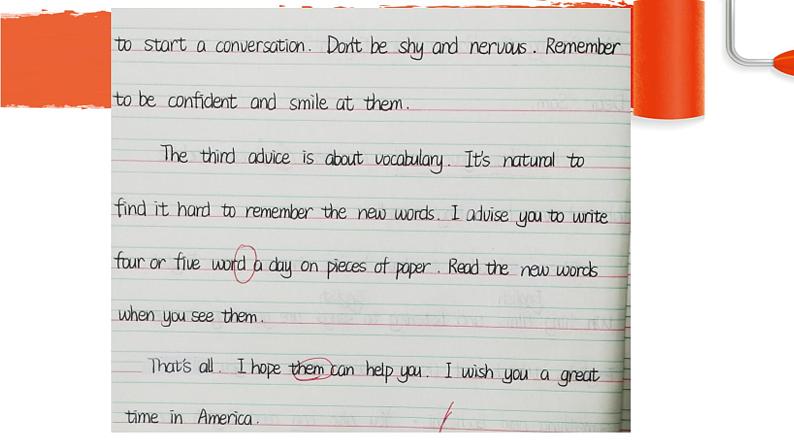 to start a conversation. Don't be shy and nervous. Remember
to be confident and smile at them.
The third advice is about vocabulary. It's natural to
find it hard to remember the new words. I advise you to write
four or five word a day on pieces of paper. Read the new words
when you see them.
That's all. I hope them can help you. I wish you a great
time in America.